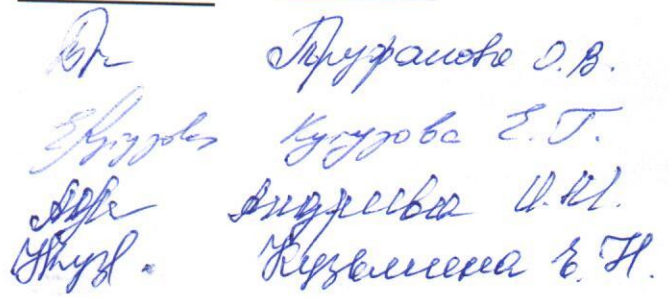 Труфанова О.В.
Кутузова Е.Г.
Андреева И.Ю.
Кузьмина Е.Н.